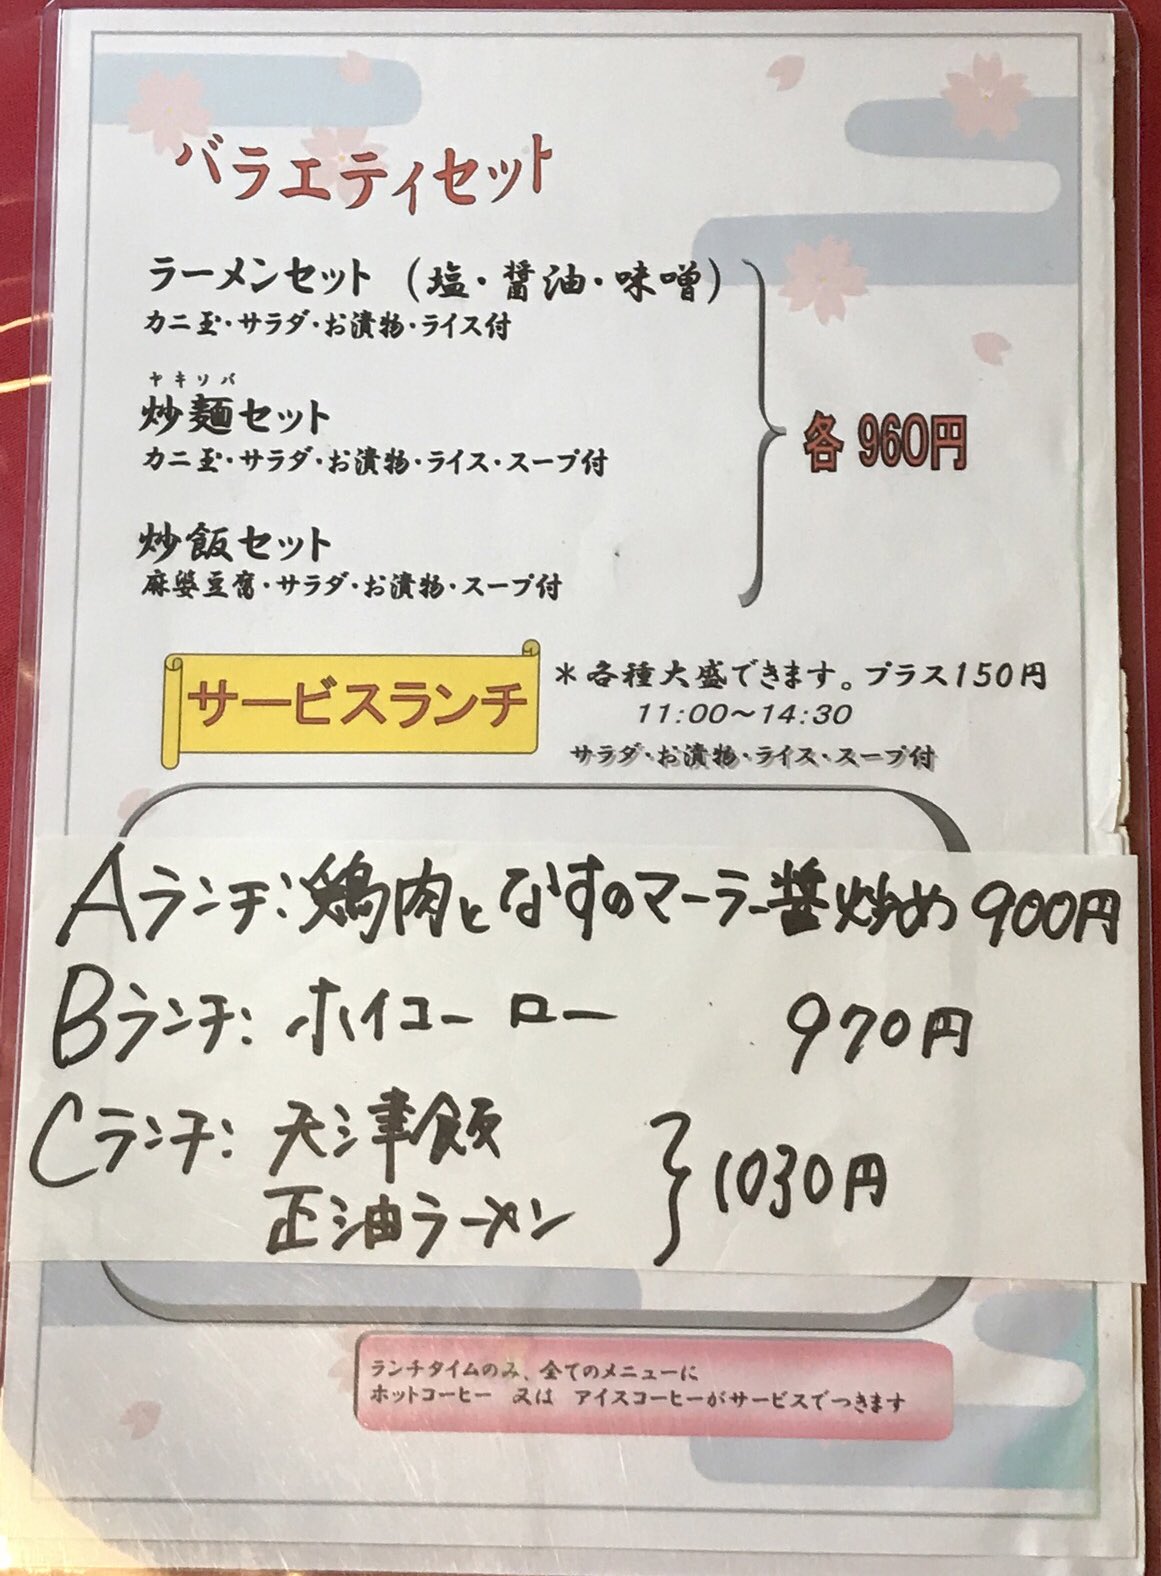 バラエティセット
ラーメンセット (塩・醤油・味噌)
カニ玉・サラダ・お漬物・ライス付
ヤキソバ
炒麺セット
カニ玉・サラダ・お漬物・ライス・スープ付
各 960円
炒飯セット
麻婆豆腐・サラダ・お漬物・スープ付
サービスランチ
＊各種大盛できます。プラス150円
11:00～14:30
サラダ・お漬物・ライス・スープ付
Aランチ:鶏肉となすのマーラー醤炒め 900円
Bランチ: ホイコーロー 970円
Cランチ: 天津飯
正油ラーメン
1030円
ランチタイムのみ、全てのメニューに
ホットコーヒー 又は アイスコーヒーがサービスでつきます